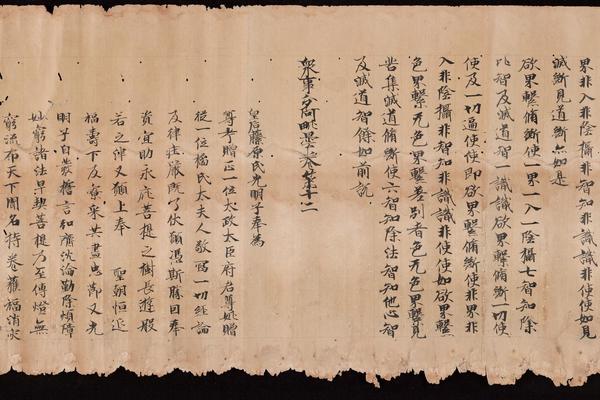 界非入非陰攝非智知非識識非使使如見
滅斷見道斷亦如是
欲界繫脩斷使一界一入一陰攝七智知除
比智及滅道智一識識欲界繫脩斷一切使
使及一切遍使使即欲界繫脩斷使非界非
入非陰攝非智知非識識非使使如欲界繫
色界繫无色界繫差別者色无色界繫見
苦集滅道脩斷使六智知除法智知他心智
及滅道智餘如前說
衆事分阿毗曇卷第十二
皇后藤原氏光明子奉為
尊考贈正一位太政大臣府君尊妣贈
從一位橘氏太夫人敬寫一切經論
及律莊嚴既了伏願憑斯勝因奉
資冥助永庇菩提之樹長遊般
若之津又願上奉 聖朝恒延
福壽下及寮采共盡忠節又光
明子自發誓言弘濟沈淪勤除煩障
妙窮諸法早契菩提乃至傳燈無
窮流布天下聞名持卷獲福消灾